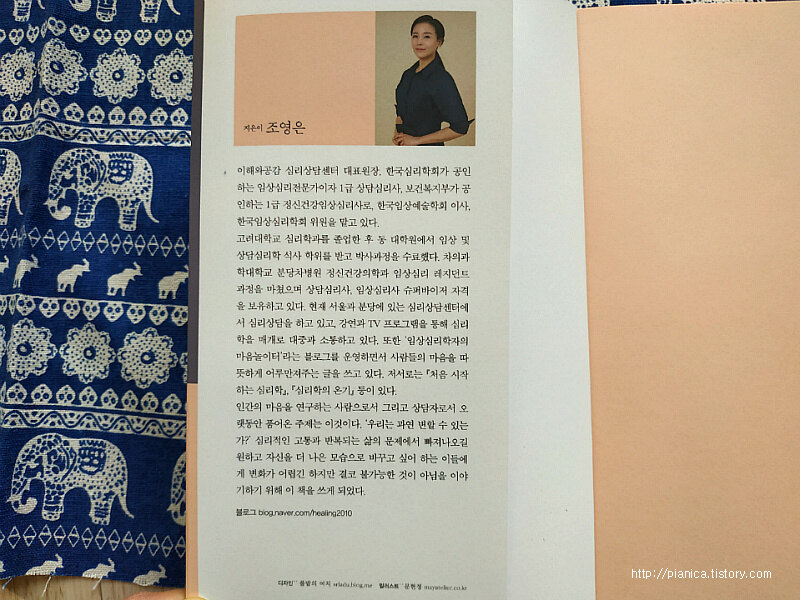 지은이 조영은
이해와공감 심리상담센터 대표원장. 한국심리학회가 공인
하는 임상심리전문가이자 1급 상담심리사, 보건복지부가 공
인하는 1급 정신건강임상심리사로, 한국임상예술학회 이사,
한국임상심리학회 위원을 맡고 있다.
고려대학교 심리학과를 졸업한 후 동 대학원에서 임상 및
상담심리학 석사 학위를 받고 박사과정을 수료했다. 차의과
학대학교 분당차병원 정신건강의학과 임상심리 레지던트
과정을 마쳤으며 상담심리사, 임상심리사 슈퍼바이저 자격
을 보유하고 있다. 현재 서울과 분당에 있는 심리상담센터에
서 심리상담을 하고 있고, 강연과 TV 프로그램을 통해 심리
학을 매개로 대중과 소통하고 있다. 또한 '임상심리학자의
마음놀이터'라는 블로그를 운영하면서 사람들의 마음을 따
뜻하게 어루만져주는 글을 쓰고 있다. 저서로는 『처음 시작
하는 심리학』, 『심리학의 온기』 등이 있다.
인간의 마음을 연구하는 사람으로서 그리고 상담자로서 오
랫동안 품어온 주제는 이것이다. '우리는 과연 변할 수 있는
가?' 심리적인 고통과 반복되는 삶의 문제에서 빠져나오길
원하고 자신을 더 나은 모습으로 바꾸고 싶어 하는 이들에
게 변화가 어렵긴 하지만 결코 불가능한 것이 아님을 이야
기하기 위해 이 책을 쓰게 되었다.
블로그 blog.naver.com/healing2010
디자인 풀밭의 여치 srladu.blog.me 일러스트 문현정 mayatelier.co.kr
http://pianica.tistory.com